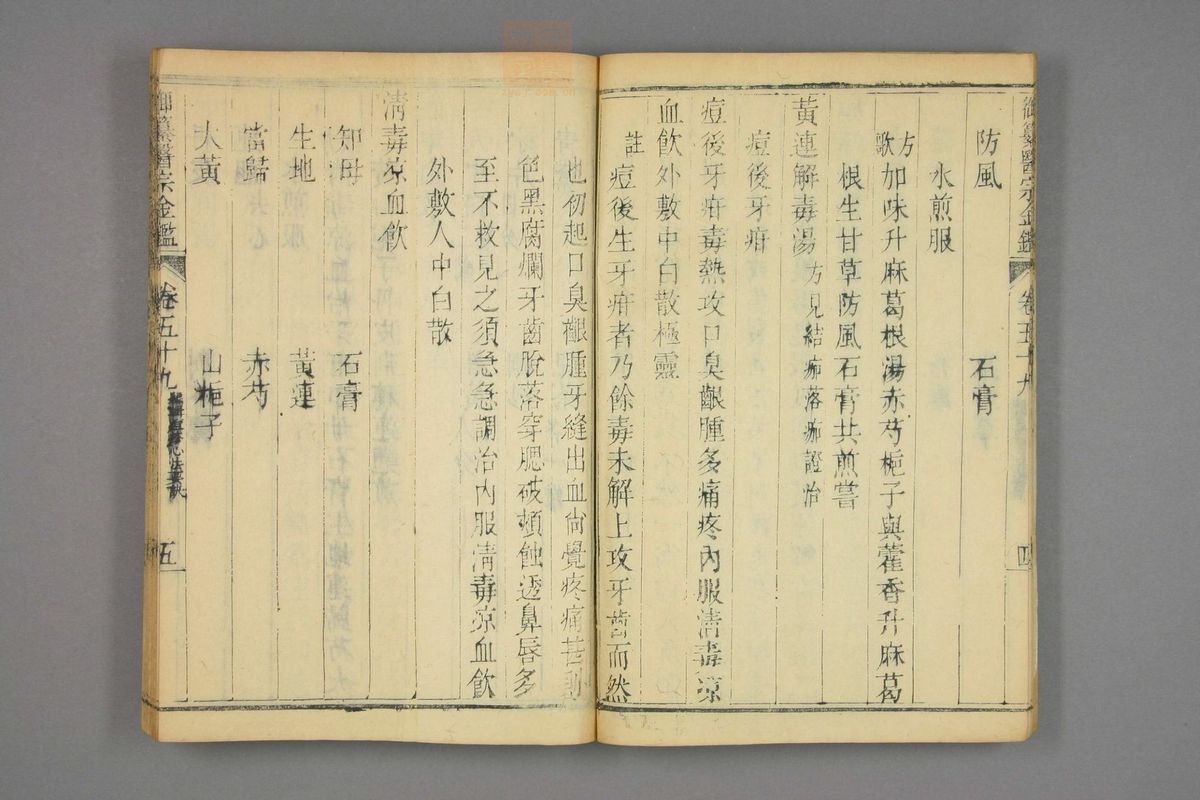 御纂醫宗金鑑
卷五十九
四
防風
石膏
水煎服
方歌
加味升麻葛根湯赤芍梔子與藿香升麻葛
根生甘草防風石膏共煎嘗
黃連解毒湯 方見結痂落痂證治
痘後牙疳
痘後牙疳毒熱攻口臭齦腫多痛疼內服淸毒凉
血飮外敷中白散極靈
註
痘後生牙疳者乃餘毒未解上攻牙齒而然
也初起口臭齦腫牙縫出血尙覺疼痛甚則
色黑腐爛牙齒脫落穿腮破頰蝕透鼻唇多
至不救見之須急急調治內服淸毒凉血飮
外敷人中白散
淸毒凉血飮
知母
石膏
生地
黃連
當歸
赤芍
大黃
山梔子
御纂醫宗金鑑
卷五十九
五